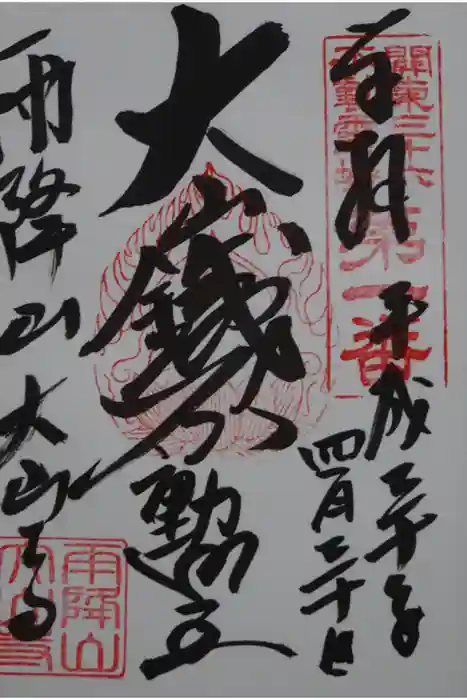 奉拝
關東三十六
不動霊場
第一番
平成三十年
四月二十日
大山鐵不動立
雨降山 大山寺
雨降山
大山寺